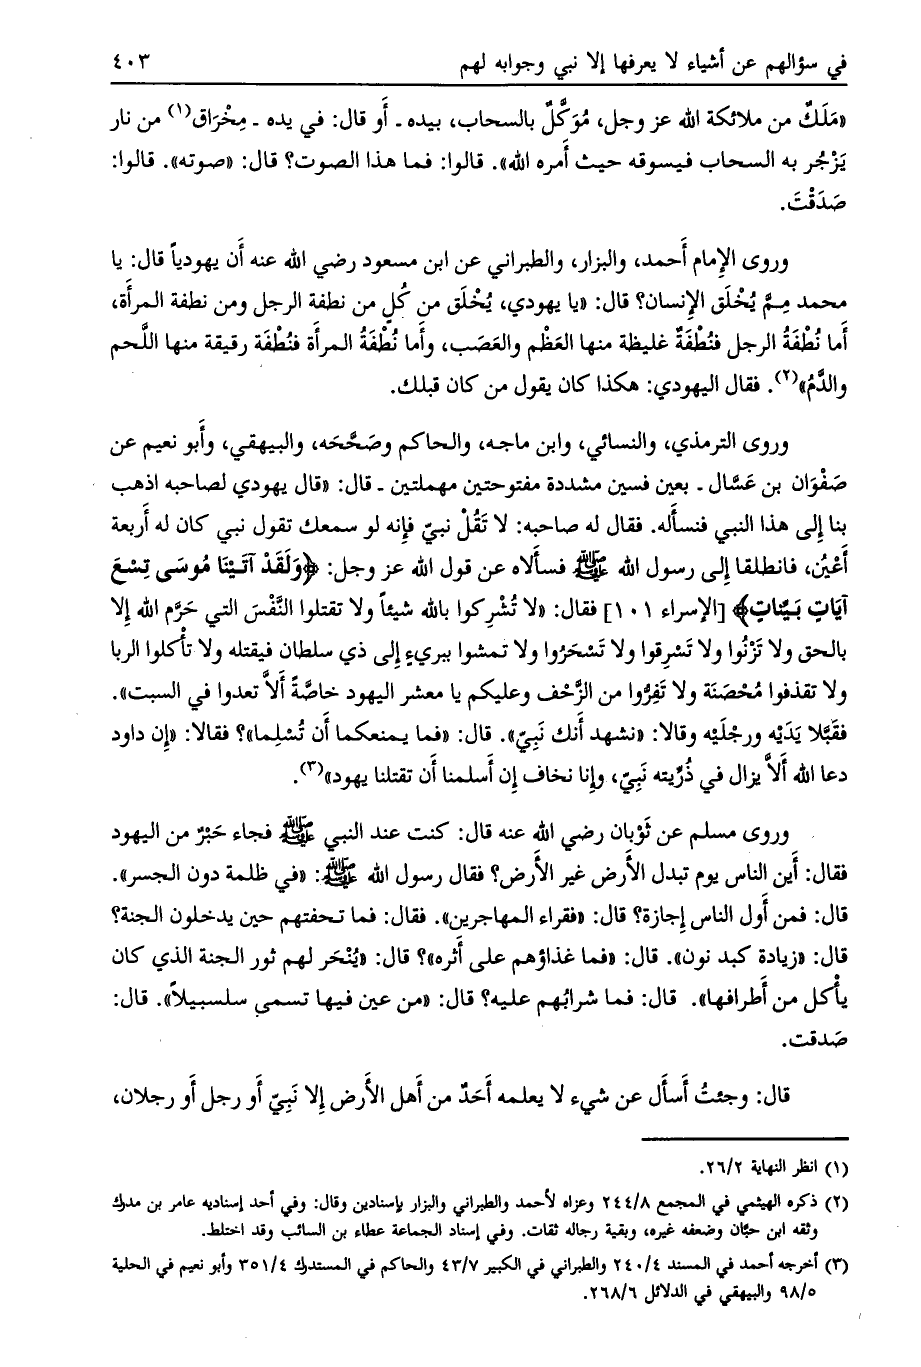 في سؤالهم عن أشياء لا يعرفها إلا نبي وجوابه لهم ٤٠٣
«مَلَكٌ من ملائكة الله عز وجل، مُوَكَّلٌ بالسحاب، بيده ـ أَو قال: في يده ـ مِخْرَاق(١) من نار
يَزْجُر به السحاب فيسوقه حيث أَمره الله». قالوا: فما هذا الصوت؟ قال: «صوته». قالوا:
صَدَقْتَ.
وروى الإِمام أَحمد، والبزار، والطبراني عن ابن مسعود رضي الله عنه أَن يهودياً قال: يا
محمد مِمَّ يُخْلَق الإِنسان؟ قال: «يا يهودي، يُخْلَق من كُلٍ من نطفة الرجل ومن نطفة المرأَة،
أَما نُطْفَةُ الرجل فنُطْفَةٌ غليظة منها العَظْم والعَصَب، وأَما نُطْفَةُ المرأَة فنُطْفَة رقيقة منها اللَّحم
والدَّمُ»(٢). فقال اليهودي: هكذا كان يقول من كان قبلك.
وروى الترمذي، والنسائي، وابن ماجه، والحاكم وصَحَّحَه، والبيهقي، وأَبو نعيم عن
صَفْوَان بن عَسَّال ـ بعين فسين مشددة مفتوحتين مهملتين ـ قال: «قال يهودي لصاحبه اذهب
بنا إِلى هذا النبي فنسأَله. فقال له صاحبه: لا تَقُلْ نبيّ فإِنه لو سمعك تقول نبي كان له أَربعة
أَعْيُن، فانطلقا إِلى رسول الله ﷺ فسأَلاه عن قول الله عز وجل: ﴿وَلَقَدْ آتَيْنَا مُوسَى تِسْعَ
آيَاتٍ بَيِّنَاتٍ﴾ [الإسراء ١٠١] فقال: «لا تُشْرِكوا بالله شيئاً ولا تقتلوا النَّفْسَ التي حَرَّم الله إِلا
بالحق ولا تَزْنُوا ولا تَسْرِقوا ولا تَسْحَرُوا ولا تمشوا ببريءٍ إِلى ذي سلطان فيقتله ولا تأْكلوا الربا
ولا تقذفوا مُحْصَنَة ولا تَفِرُّوا من الزَّحْف وعليكم يا معشر اليهود خاصَّةً أَلاَّ تعدوا في السبت».
فقَبَّلا يَدَيْه ورجْلَيْه وقالا: «نشهد أنك نَبِيّ». قال: «فما يمنعكما أَن تُسْلِما»؟ فقالا: «إِن داود
دعا الله أَلاَّ يزال في ذُرِّيته نَبِيّ، وإِنا نخاف إِن أَسلمنا أَن تقتلنا يهود»(٣).
وروى مسلم عن ثَوْبان رضي الله عنه قال: كنت عند النبي ﷺ فجاء حَبْرٌ من اليهود
فقال: أَين الناس يوم تبدل الأَرض غير الأَرض؟ فقال رسول الله ﷺ: «في ظلمة دون الجسر».
قال: فمن أَول الناس إجازة؟ قال: «فقراء المهاجرين». فقال: فما تحفتهم حين يدخلون الجنة؟
قال: «زيادة كبد نون». قال: «فما غذاؤهم على أَثره»؟ قال: «يُنْحَر لهم ثور الجنة الذي كان
يأْكل من أَطرافها». قال: فما شرابُهم عليه؟ قال: «من عين فيها تسمى سلسبيلاً». قال:
صَدقت.
قال: وجئتُ أَسأَل عن شيء لا يعلمه أَحَدٌ من أَهل الأَرض إِلا نَبِيّ أَو رجل أَو رجلان،
(١) انظر النهاية ٢٦/٢.
(٢) ذكره الهيثمي في المجمع ٢٤٤/٨ وعزاه لأحمد والطبراني والبزار بإسنادين وقال: وفي أحد إسناديه عامر بن مدرك
وثقه ابن حبَّان وضعفه غيره، وبقية رجاله ثقات. وفي إسناد الجماعة عطاء بن السائب وقد اختلط.
(٣) أخرجه أحمد في المسند ٢٤٠/٤ والطبراني في الكبير ٤٣/٧ والحاكم في المستدرك ٣٥١/٤ وأبو نعيم في الحلية
٩٨/٥ والبيهقي في الدلائل ٢٦٨/٦.